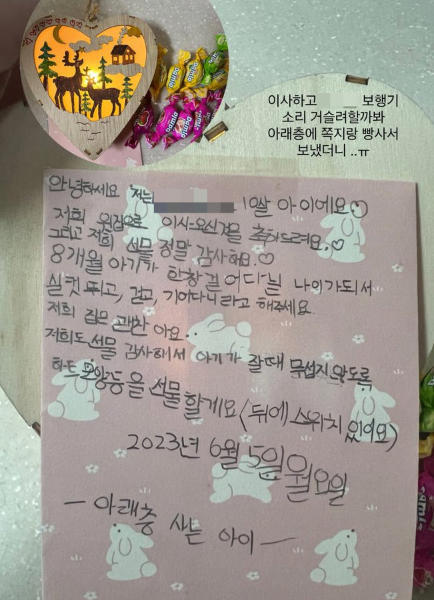 이사하고 보행기
소리 거슬려할까봐
아래층에 쪽지랑 빵사서
보냈더니 ..ㅠ
안녕하세요 저는 10살 아이에요
저희 윗집으로 이사오신걸 축하드려요.♡
그리고 저희 선물 정말 감사해요.♡
8개월 아기가 한창 걸어다닐 나이가되서
실컷 뛰고, 걷고, 기어다니라고 해주세요.
저희 집은 괜찬아요
저희도 선물 감사해서 아기가 잘때 무섭지 않도록
하트 모양등을 선물할게요 (뒤에 스위치 있어요)
2023년 6월 5일 월요일
- 아래층 사는 아이 -